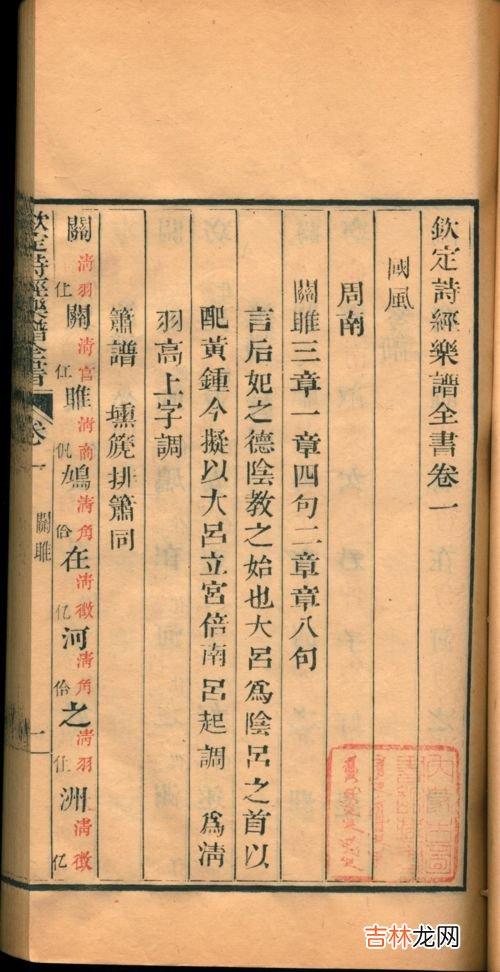 欽定詩經樂譜全書卷一
國風
周南
關雎三章一章四句二章章八句
言后妃之德陰教之始也大呂爲陰呂之首以
配黃鍾今擬以大呂立宮倍南呂起調 爲清
羽高上字調
簫譜 壎篪排簫同
關清羽仩關清宮仜雎清商㐳鳩清角伬在清徵億河清角伬之清羽仩洲清徵億
欽定詩經樂譜全書 卷一 關雎 一
吉林龙网